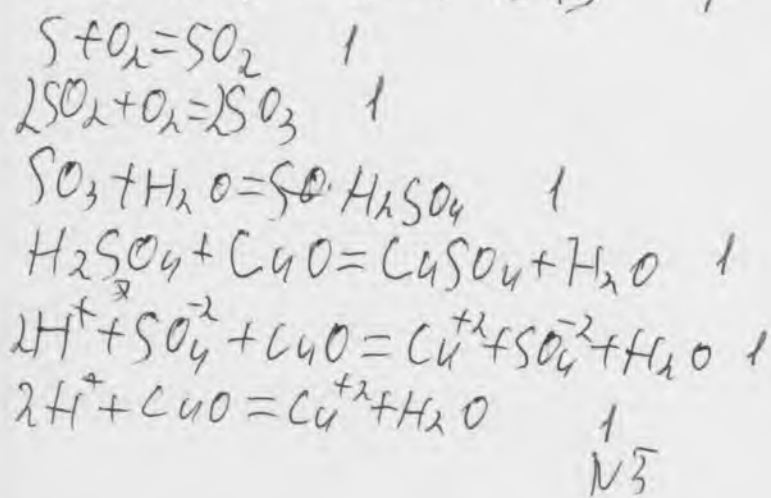 S+O₂=SO₂ 1
2SO₂+O₂=2SO₃ 1
SO₃+H₂O=H₂SO₄ 1
H₂SO₄+CuO=CuSO₄+H₂O 1
2H⁺+SO₄⁻²+CuO=Cu⁺²+SO₄⁻²+H₂O 1
2H⁺+CuO=Cu⁺²+H₂O 1
N5